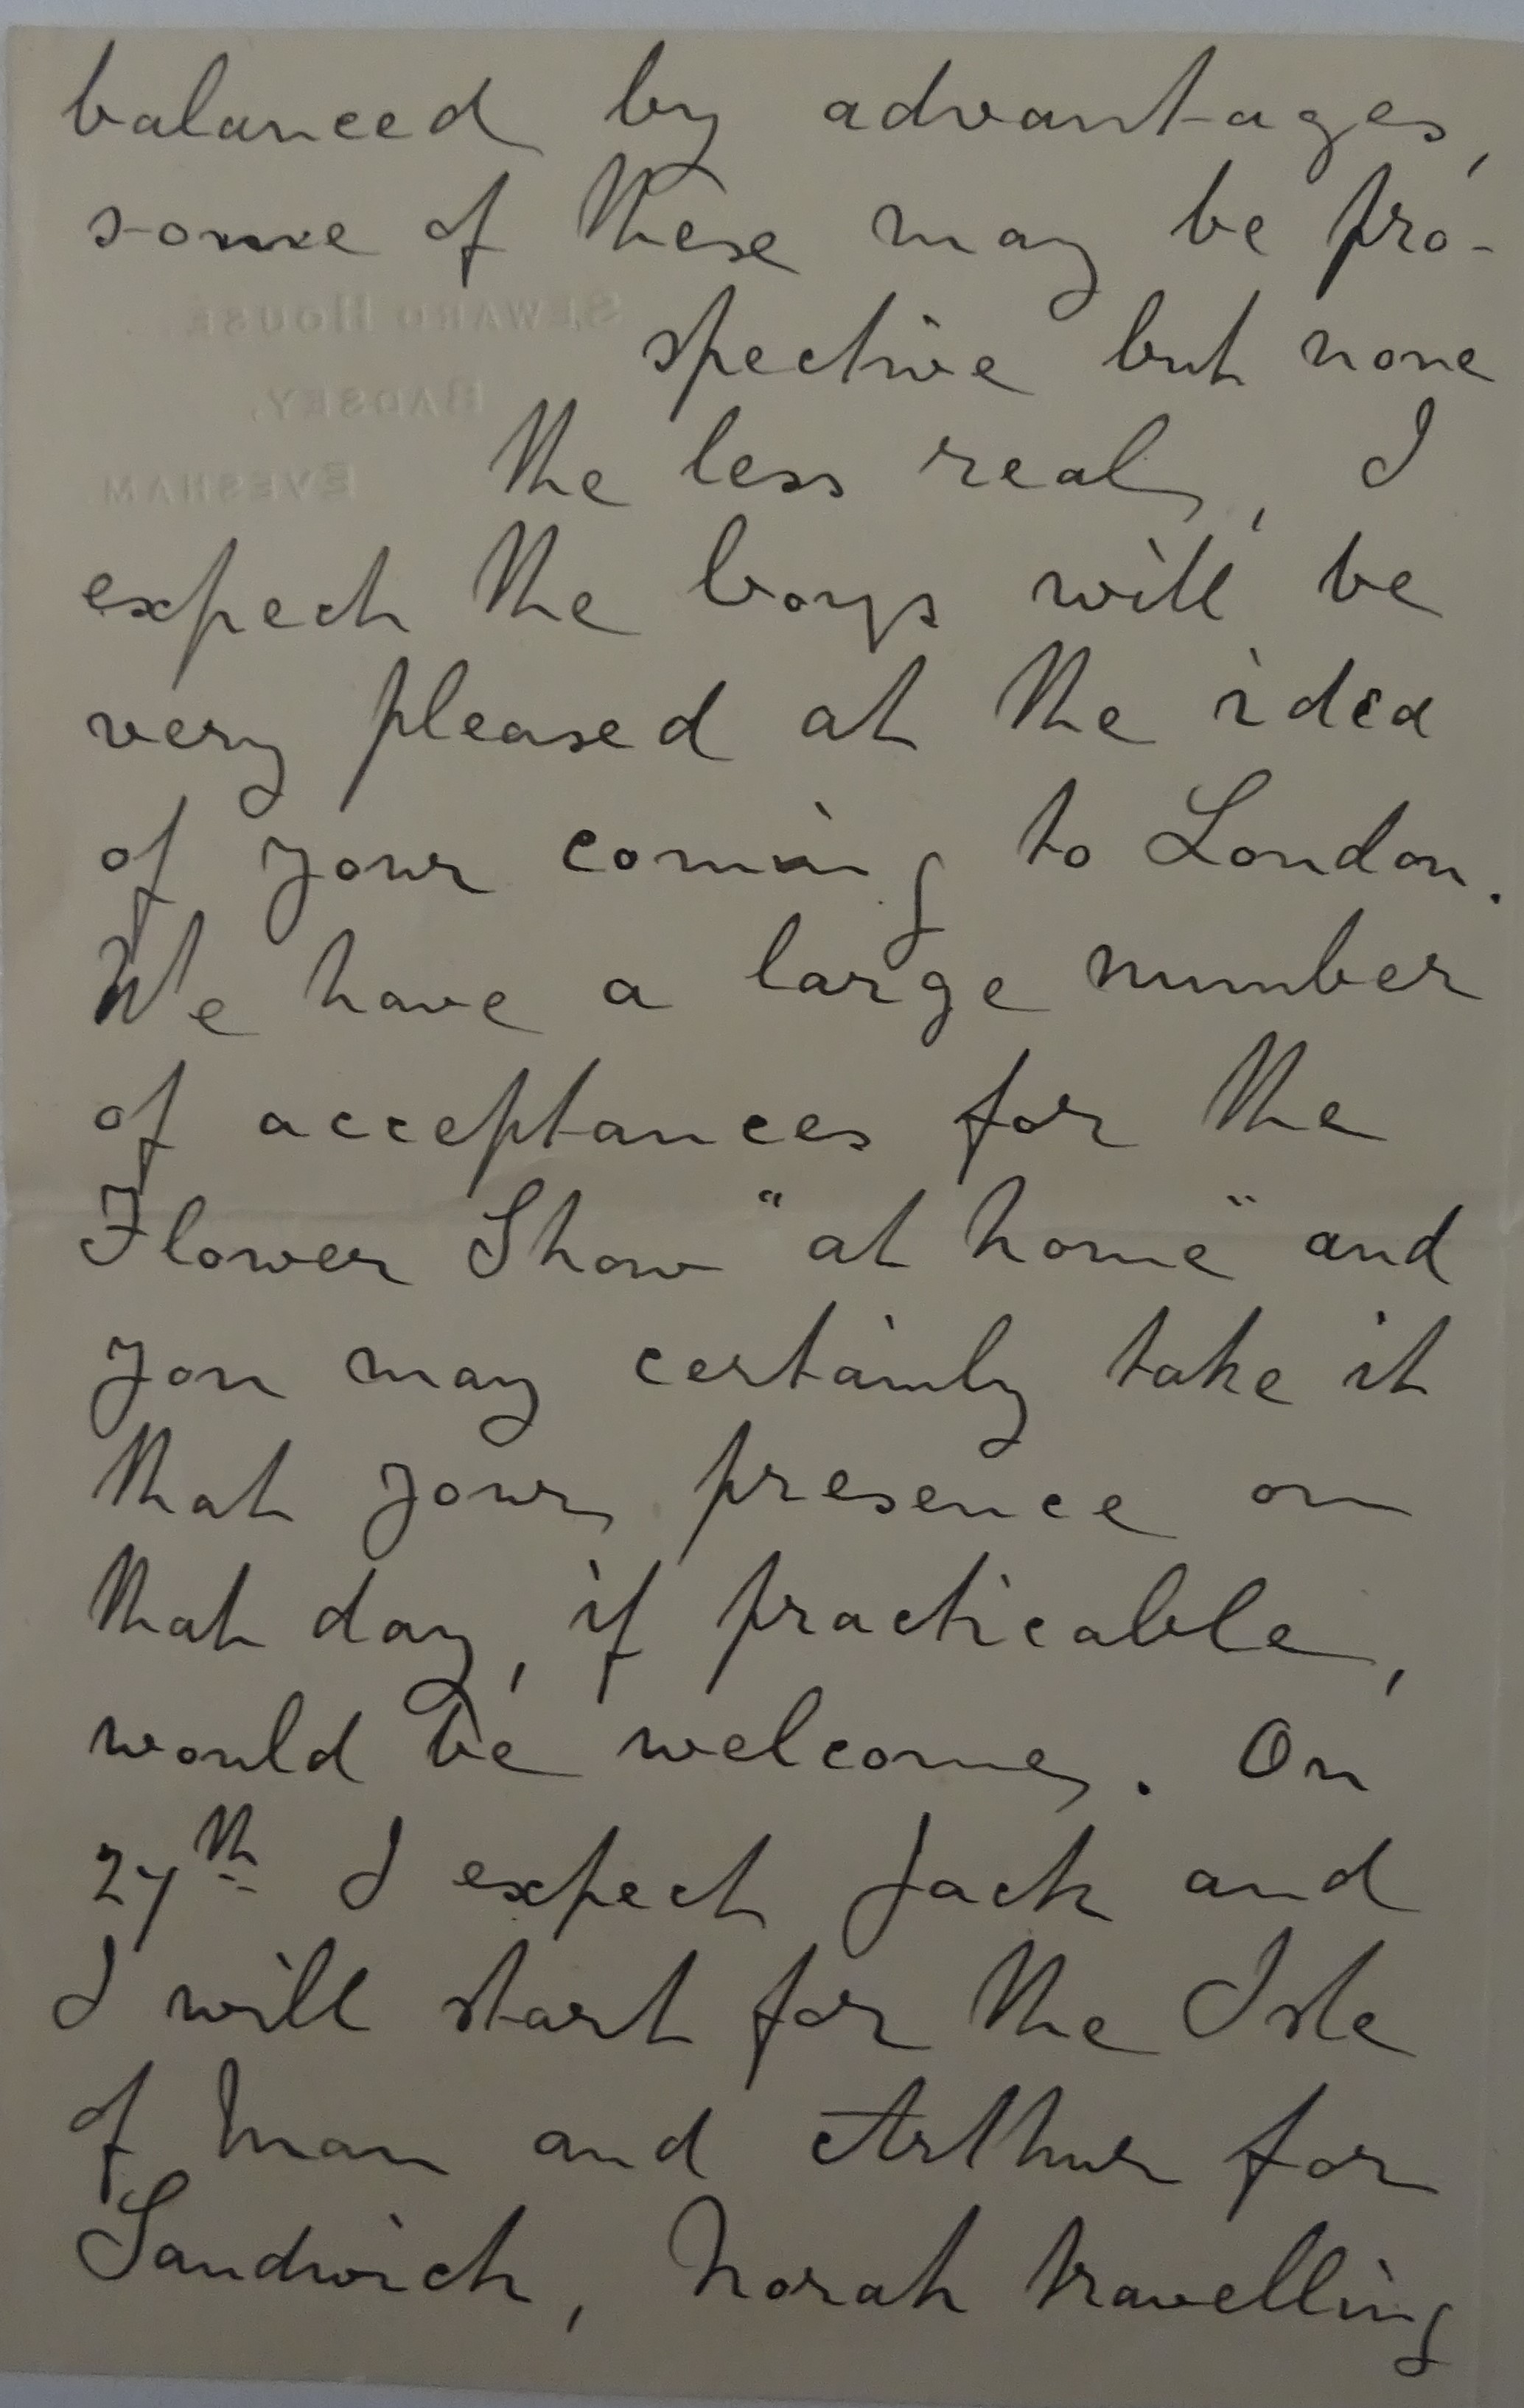 balanced by advantages,
some of these may be pro-
SEWARD HOUSE,
spective but none
BADSEY,
the less real, I
EVESHAM
expect the boys will be
very pleased at the idea
of your coming to London.
We have a large number
of acceptances for the
Flower Show "at home" and
you may certainly take it
that your presence on
that day, if practicable,
would be welcome. On
27th I expect Jack and
I will start for the Isle
of Man and Arthur for
Sandwich, Norah travelling